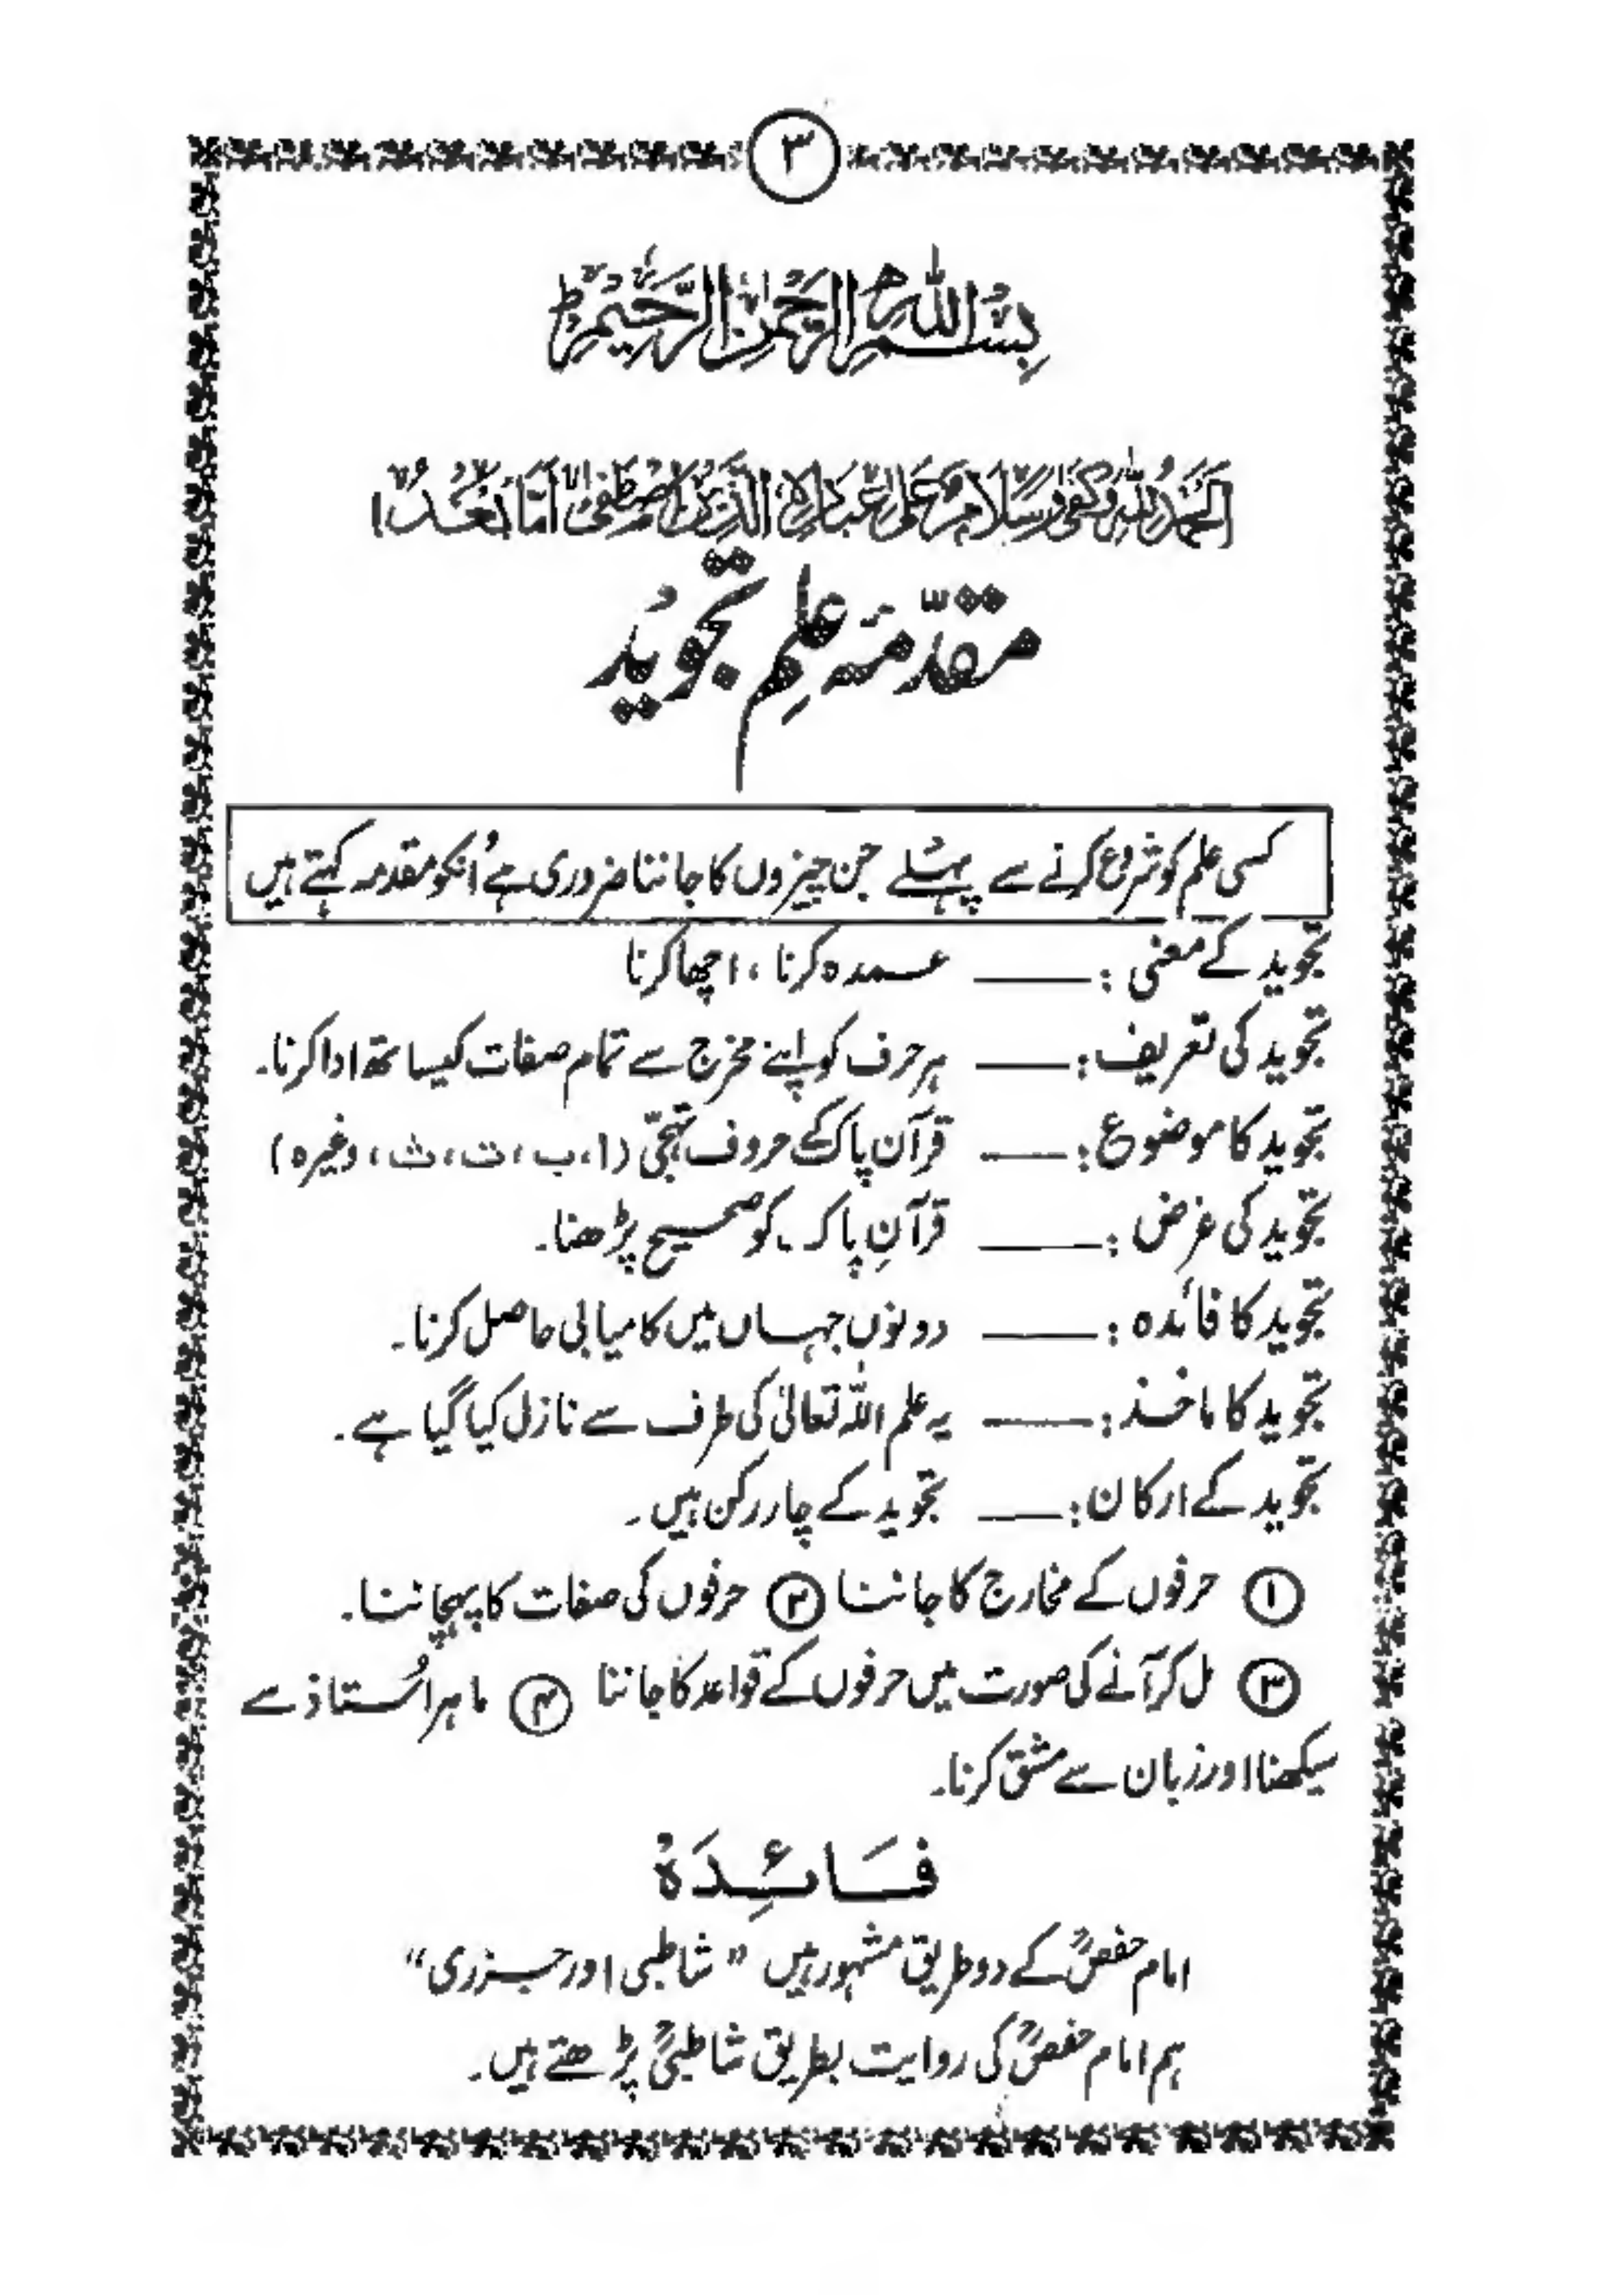 ۳
بِسْمِ اللهِ الرَّحْمٰنِ الرَّحِيْمِ ط
اَلْحَمْدُ لِلّٰهِ وَكَفٰى وَسَلَامٌ عَلٰى عِبَادِهِ الَّذِيْنَ اصْطَفٰى اَمَّا بَعْدُ!
مقدّمۂ علمِ تجوید
کسی علم کو شروع کرنے سے پہلے جن چیزوں کا جاننا ضروری ہے اُنکو مقدمہ کہتے ہیں
تجوید کے معنی : ــــــ عمدہ کرنا ، اچھا کرنا
تجوید کی تعریف : ــــــ ہر حرف کو اپنے مخرج سے تمام صفات کیساتھ ادا کرنا۔
تجوید کا موضوع : ــــــ قرآن پاک کے حروف تہجّی (ا ، ب ، ت ، ث ، وغیرہ)
تجوید کی غرض : ــــــ قرآنِ پاک کو صحیح پڑھنا۔
تجوید کا فائدہ : ــــــ دونوں جہاں میں کامیابی حاصل کرنا۔
تجوید کا ماخذ : ــــــ یہ علم اللہ تعالیٰ کی طرف سے نازل کیا گیا ہے۔
تجوید کے ارکان : ــــــ تجوید کے چار رکن ہیں۔
① حرفوں کے مخارج کا جاننا ② حرفوں کی صفات کا پہچاننا۔
③ مل کر آنے کی صورت میں حرفوں کے قواعد کا جاننا ④ ماہر اُستاذ سے
سیکھنا اور زبان سے مشق کرنا۔
فَائِدَہ
امام حفصؒ کے دو طریق مشہور ہیں " شاطبی اور جزری"
ہم امام حفصؒ کی روایت بطریق شاطبیؒ پڑھتے ہیں۔